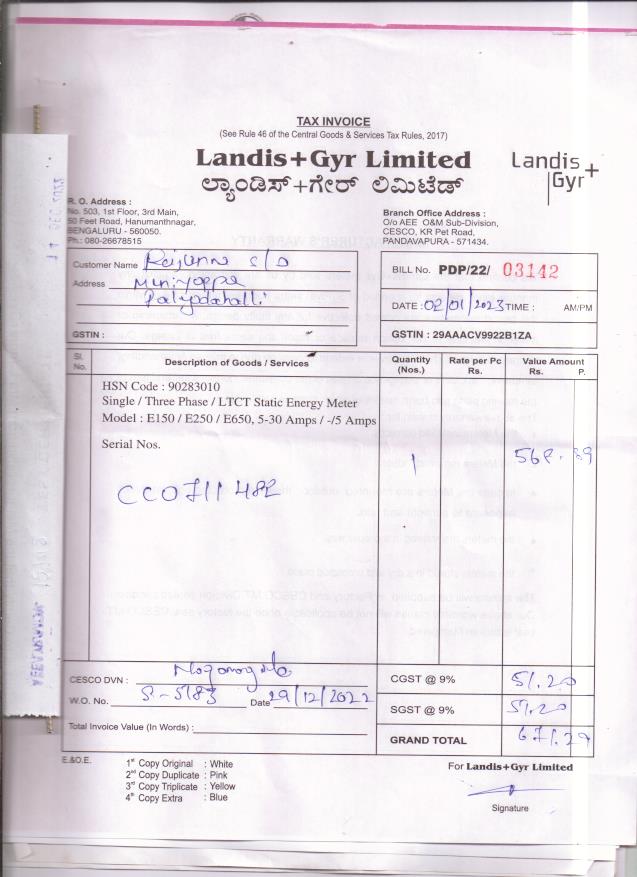 TAX INVOICE
(See Rule 46 of the Central Goods & Services Tax Rules, 2017)
Landis+Gyr Limited
ಲ್ಯಾಂಡಿಸ್+ಗೇರ್ ಲಿಮಿಟೆಡ್
Landis+
Gyr
R. O. Address :
No. 503, 1st Floor, 3rd Main,
50 Feet Road, Hanumanthnagar,
BENGALURU - 560050.
Ph.: 080-26678515
Branch Office Address :
O/o AEE O&M Sub-Division,
CESCO, KR Pet Road,
PANDAVAPURA - 571434.
Customer Name S/o
Address Muniyappa
GSTIN :
BILL No. PDP/22/ 03142
DATE : 02/01/2023 TIME : AM/PM
GSTIN : 29AAACV9922B1ZA
Sl. No. Description of Goods / Services Quantity (Nos.) Rate per Pc Rs. Value Amount Rs. P.
HSN Code : 90283010
Single / Three Phase / LTCT Static Energy Meter
Model : E150 / E250 / E650, 5-30 Amps / -/5 Amps
Serial Nos.
1 568.89
CC0711482
CESCO DVN :
W.O. No. S-5183 Date 29/12/2022
Total Invoice Value (In Words) :
CGST @ 9% 51.20
SGST @ 9% 51.20
GRAND TOTAL 671.29
E.&O.E.
1st Copy Original : White
2nd Copy Duplicate : Pink
3rd Copy Triplicate : Yellow
4th Copy Extra : Blue
For Landis+Gyr Limited
Signature